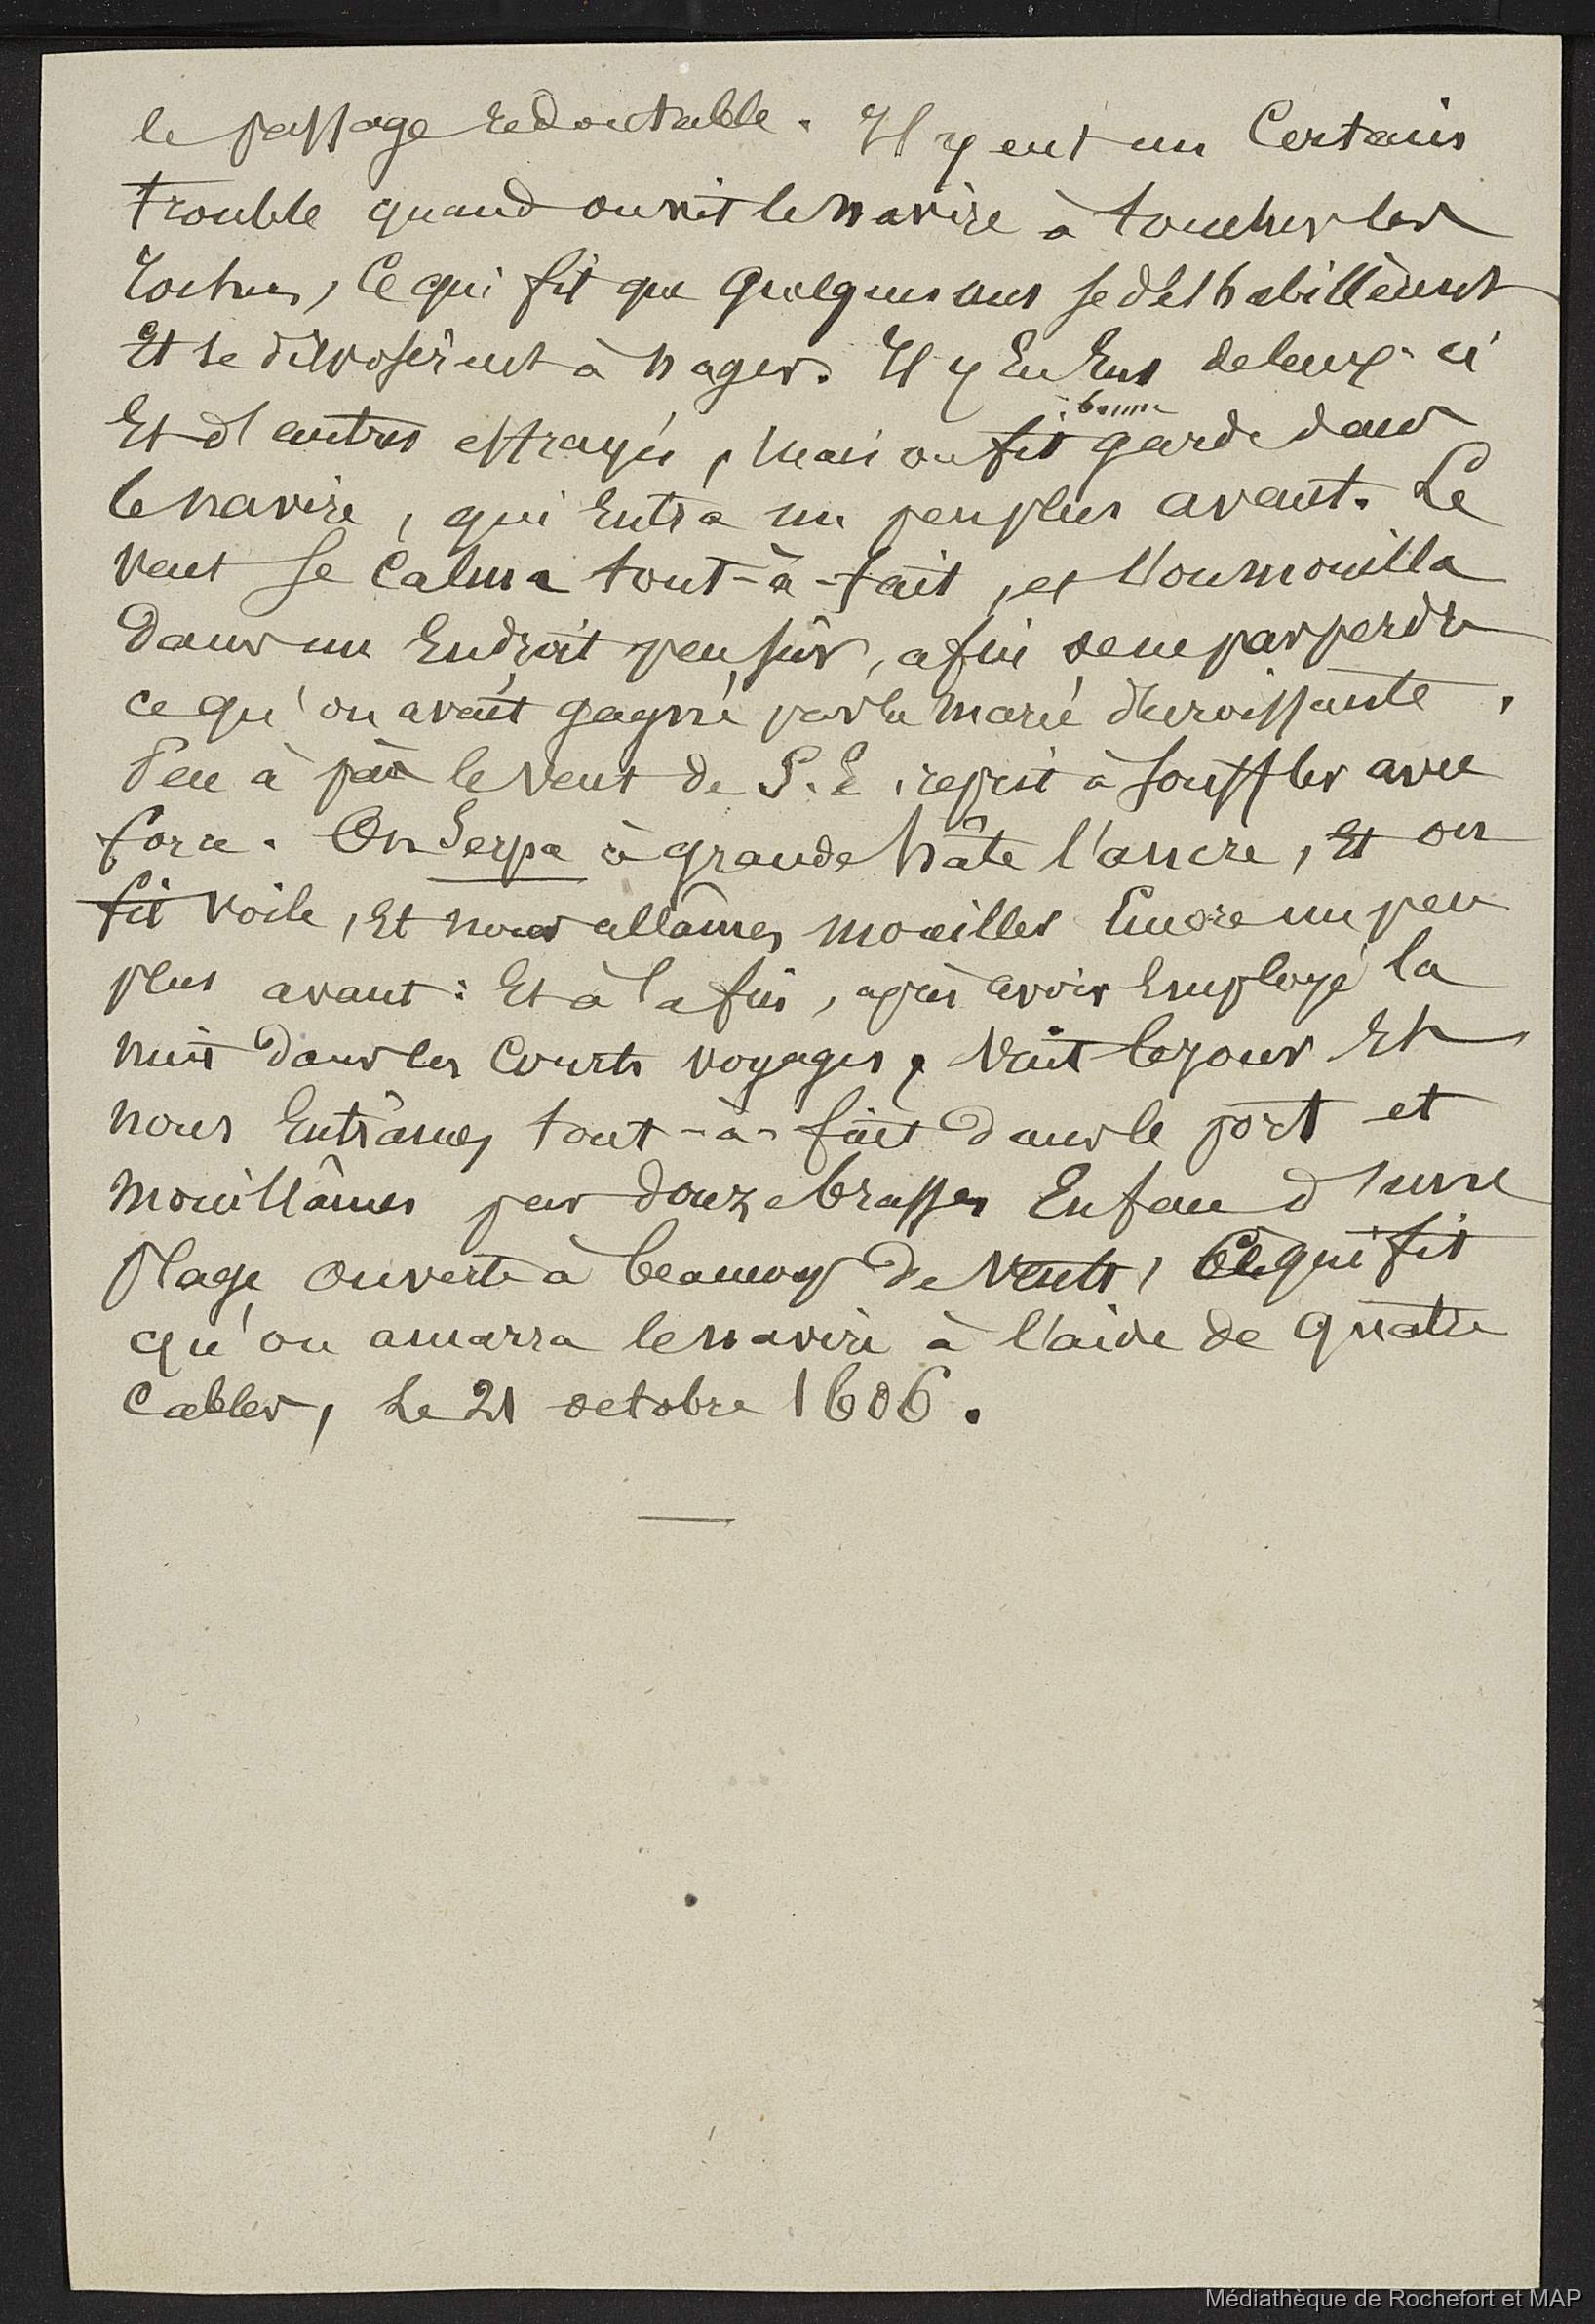 le passage redoutable. Il y eut un certain
trouble quand on vit le navire à toucher les
roches, ce qui fit que quelques uns se déshabillèrent
et se disposèrent à nager. Il y en eut de ceux-ci
bonne
et d'autres effrayés, mais on fit garde dans
le navire, qui entra un peu plus avant. Le
vent se calma tout-à-fait, et l'on mouilla
dans un endroit peu sûr, afin de ne pas perdre
ce qu'on avait gagné par la marée décroissante.
Peu à peu le vent de S.E. reprit à souffler avec
force. On serpa à grande hâte l'ancre, et on
fit voile, et nous allâmes mouiller encore un peu
plus avant : et à la fin, après avoir employé la
nuit dans les courts voyages, vint le jour et
nous entrâmes tout-à-fait dans le port et
mouillâmes par douze brasses en face d'une
plage ouverte à beaucoup de vents, ce qui fit
qu'on amarra le navire à l'aide de quatre
cables, le 21 octobre 1606.
Médiathèque de Rochefort et MAP